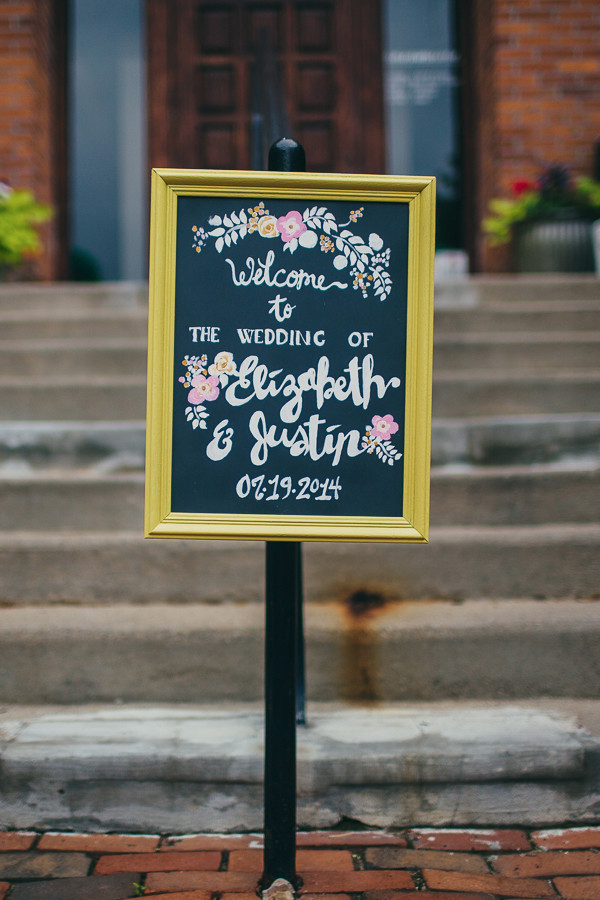 Welcome
to
THE WEDDING OF
Elizabeth
& Justin
07.19.2014